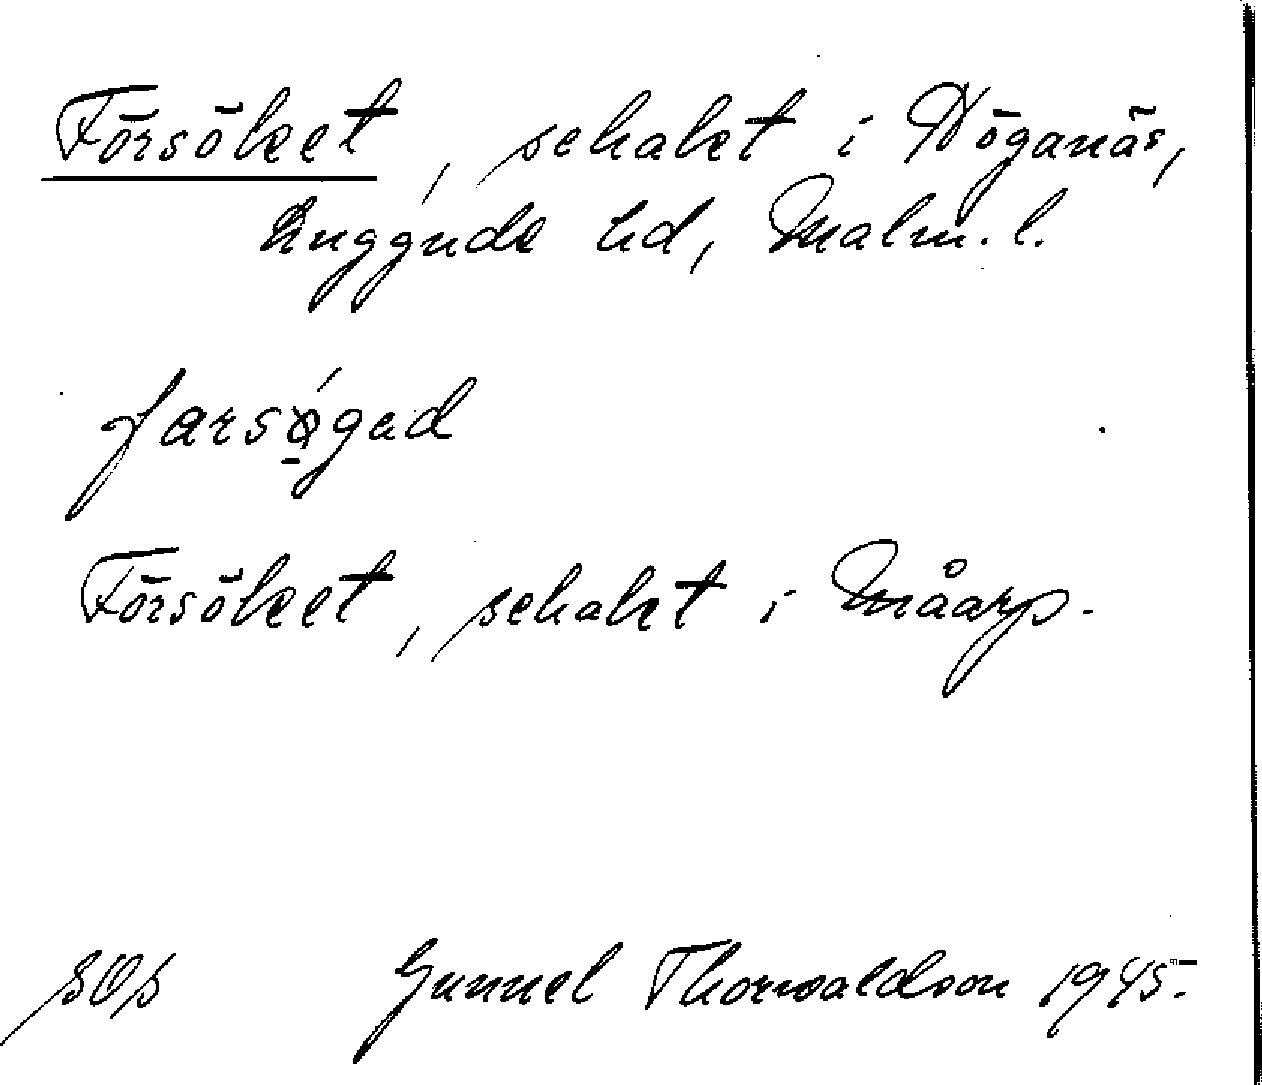 Försöket, schakt i Höganäs,
Luggude hd, Malm. l.
farsǿ̱gəd
Försöket, schakt i Måarp.
Gunnel Thorwaldson 1945.